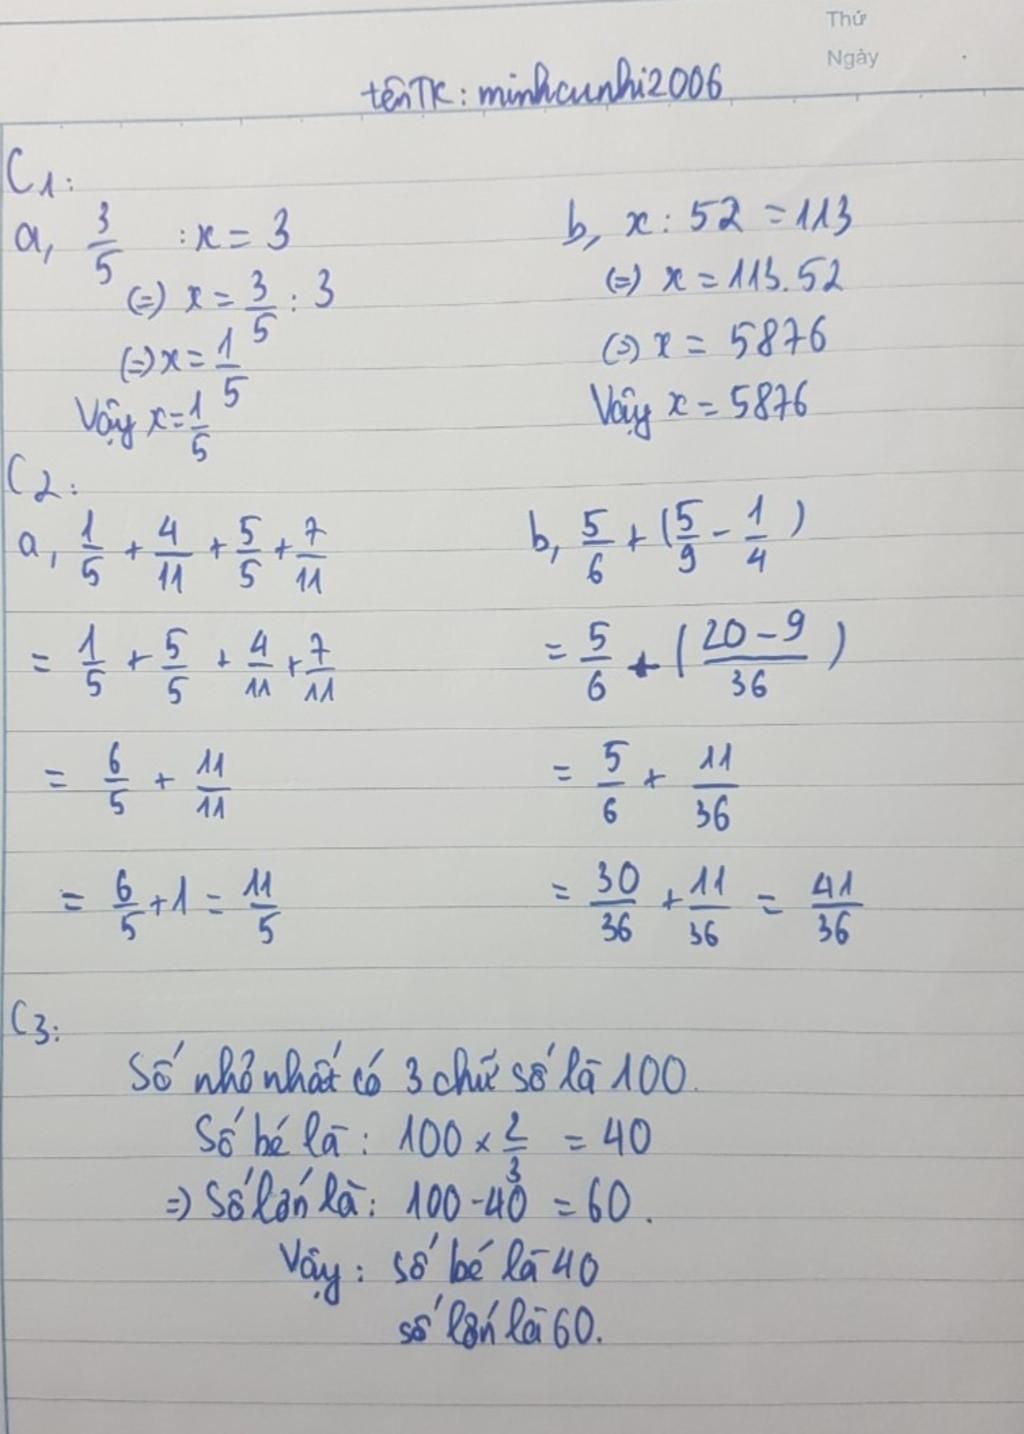 Thứ
Ngày
tênTK: minhcunhi2006
C1:
a, 3/5 : x = 3
(=) x = 3/5 : 3
(=) x = 1/5
Vậy x = 1/5
b, x : 52 = 113
(=) x = 113.52
(=) x = 5876
Vậy x = 5876
C2:
a, 1/5 + 4/11 + 5/5 + 7/11
= 1/5 + 5/5 + 4/11 + 7/11
= 6/5 + 11/11
= 6/5 + 1 = 11/5
b, 5/6 + (5/9 - 1/4)
= 5/6 + ((20 - 9)/36)
= 5/6 + 11/36
= 30/36 + 11/36 = 41/36
C3:
Số nhỏ nhất có 3 chữ số là 100.
Số bé là: 100 × 2/3 = 40
=) Số lớn là: 100 - 40 = 60.
Vậy: số bé là 40
số lớn là 60.